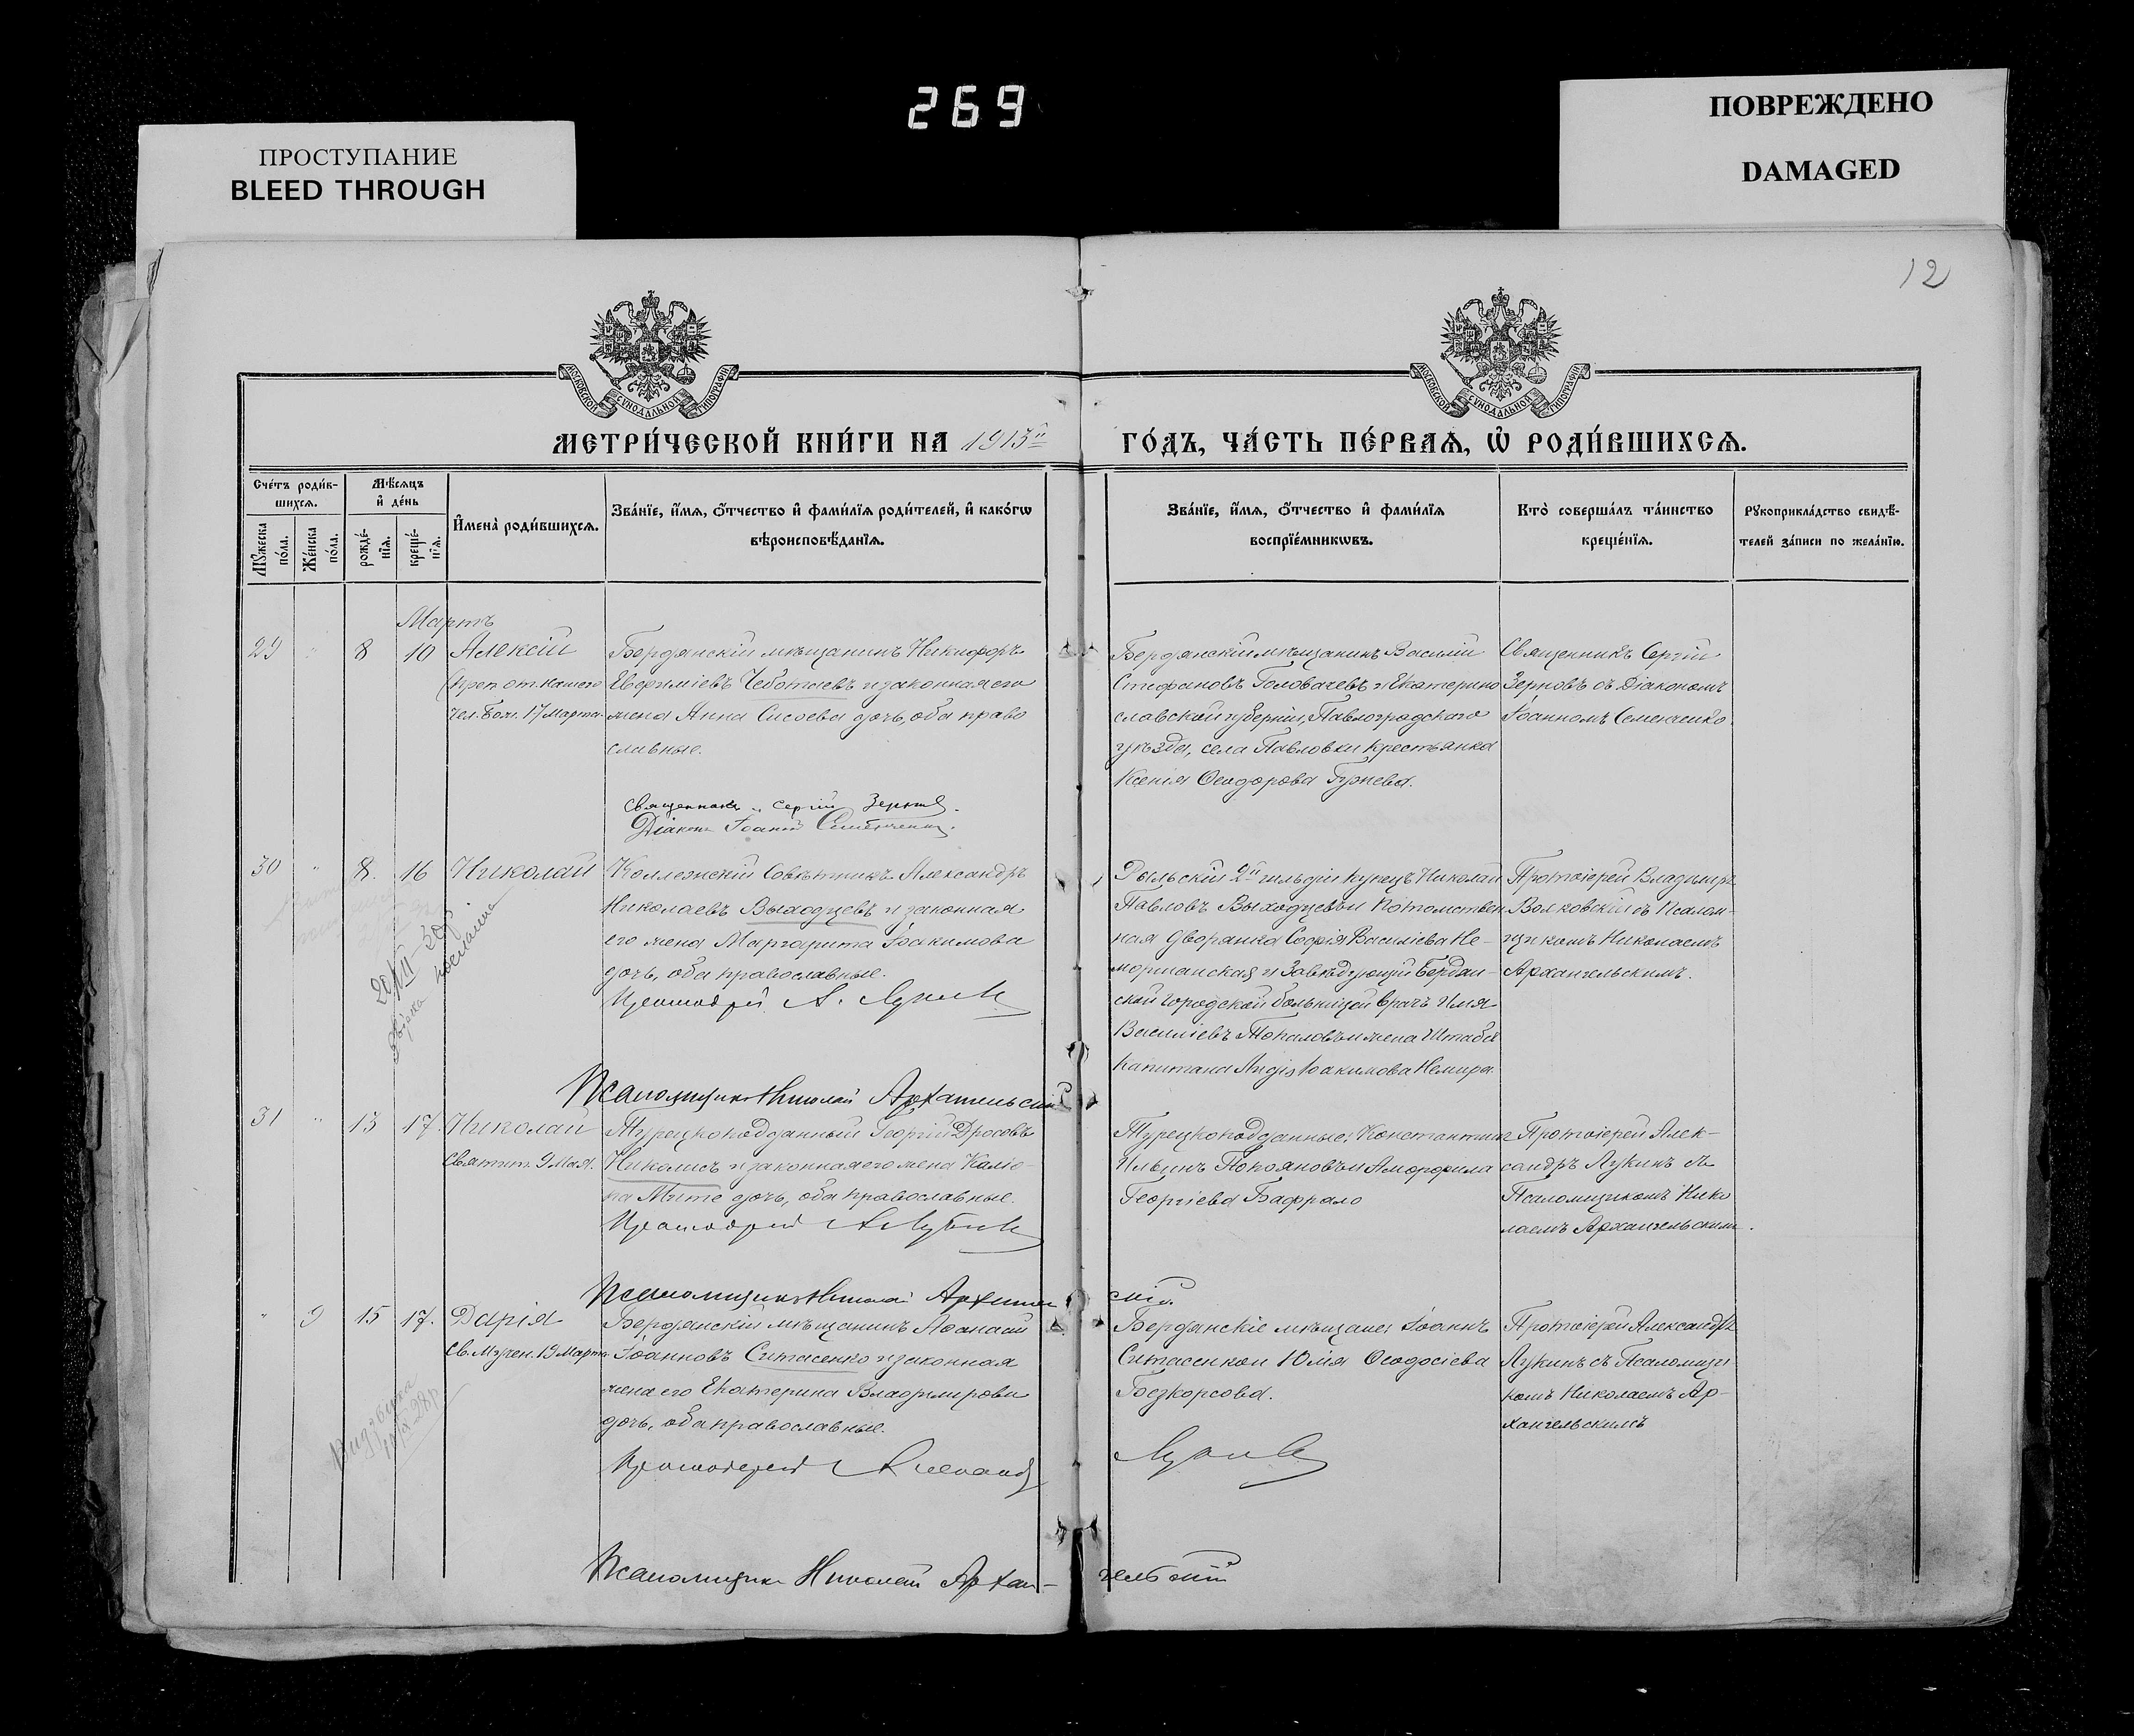 269
ПРОСТУПАНИЕ
BLEED THROUGH
ПОВРЕЖДЕНО
DAMAGED
12
МОСКОВСКОЙ СѴНОДАЛЬНОЙ ТИПОГРАФІИ
МОСКОВСКОЙ СѴНОДАЛЬНОЙ ТИПОГРАФІИ
МЕТРИ́ЧЕСКОЙ КНИ́ГИ НА 1913й ГО́ДЪ, ЧА́СТЬ ПЕ́РВАѦ, Ѡ҆ РОДИ́ВШИХСѦ.
Сче́тъ роди́в-
шихсѧ.
Мѹ́жеска по́ла.
Же́нска по́ла.
Мѣ́сѧцъ
и҆ де́нь
рожде́-
нїѧ.
креще́-
нїѧ.
И҆мена̀ роди́вшихсѧ.
Зва́нїе, и҆́мѧ, ѻ҆́тчество и҆ фами́лїѧ роди́телей, и҆ како́гѡ
вѣроисповѣ́данїѧ.
Зва́нїе, и҆́мѧ, ѻ҆́тчество и҆ фами́лїѧ
воспрїе́мникѡвъ.
Кто̀ соверша́лъ та́инство
креще́нїѧ.
Рѹкоприкла́дство свидѣ́-
телей за́писи по жела́нїю.
Мартъ
29 " 8 10 Алексій
(преп. от. нашего
чел. Бож. 17 Марта.
Бердянскій мѣщанинъ Никифоръ
Евфиміевъ Чеботаевъ и законная его
жена Анна Сисоева дочь, оба право
славные.
Священникъ Сергій Зерновъ.
Діаконъ Іоаннъ Семенченко.
Бердянскій мѣщанинъ Василій
Стефановъ Головачевъ и Екатерино
славской губерніи, Павлоградскаго
уѣзда, села Павловки крестьянка
Ксенія Ѳеодорова Гурнева.
Священникъ Сергій
Зерновъ съ Діакономъ
Іоанномъ Семенченко
30 " 8. 16 Николай
Коллежскій Совѣтникъ Александръ
Николаевъ Выходцевъ и законная
его жена Маргарита Іоакимова
дочь, оба православные.
Протоіерей А. Лукинъ
Псаломщикъ Николай Архангельскій
Рыльскій 2й гильдіи купецъ Николай
Павловъ Выходцевъ и потомствен
ная дворянка Софія Василіева Не-
моршанская и Завѣдующій Бердян-
ской городской больницей врачъ Илія
Василіевъ Топаловъ и жена Штабсъ
капитана Іоакимова Немира.
Протоіерей Владиміръ
Волковскій съ Псалом-
щикомъ Николаемъ
Архангельскимъ.
31 " 13 17. Николай
Святит. 9 Мая.
Турецкоподданный Георгій Дросовъ
Николисъ и законная его жена Каліо-
па Мите дочь, оба православные.
Протоіерей А Лукинъ
Псаломщикъ Николай Архангельскій.
Турецкоподданные: Константинъ
Ильинъ Покояновъ и
Георгіева Бафрало
Протоіерей Алек-
сандръ Лукинъ съ
Псаломщикомъ Нико
лаемъ Архангельскимъ.
" 9 15 17. Дарія
Св. Мучен. 19 Марта.
Бердянскій мѣщанинъ Аѳанасій
Іоанновъ Ситасенко и законная
жена его Екатерина Владимирова
дочь, оба православные.
Протоіерей Александръ Лукинъ
Псаломщикъ Николай Архан-гельскій
Бердянскіе мѣщане: Іоаннъ
Ситасенко и Юлія Ѳеодосіева
Безкорсова.
Протоіерей Александръ
Лукинъ съ Псаломщи
комъ Николаемъ Ар-
хангельскимъ